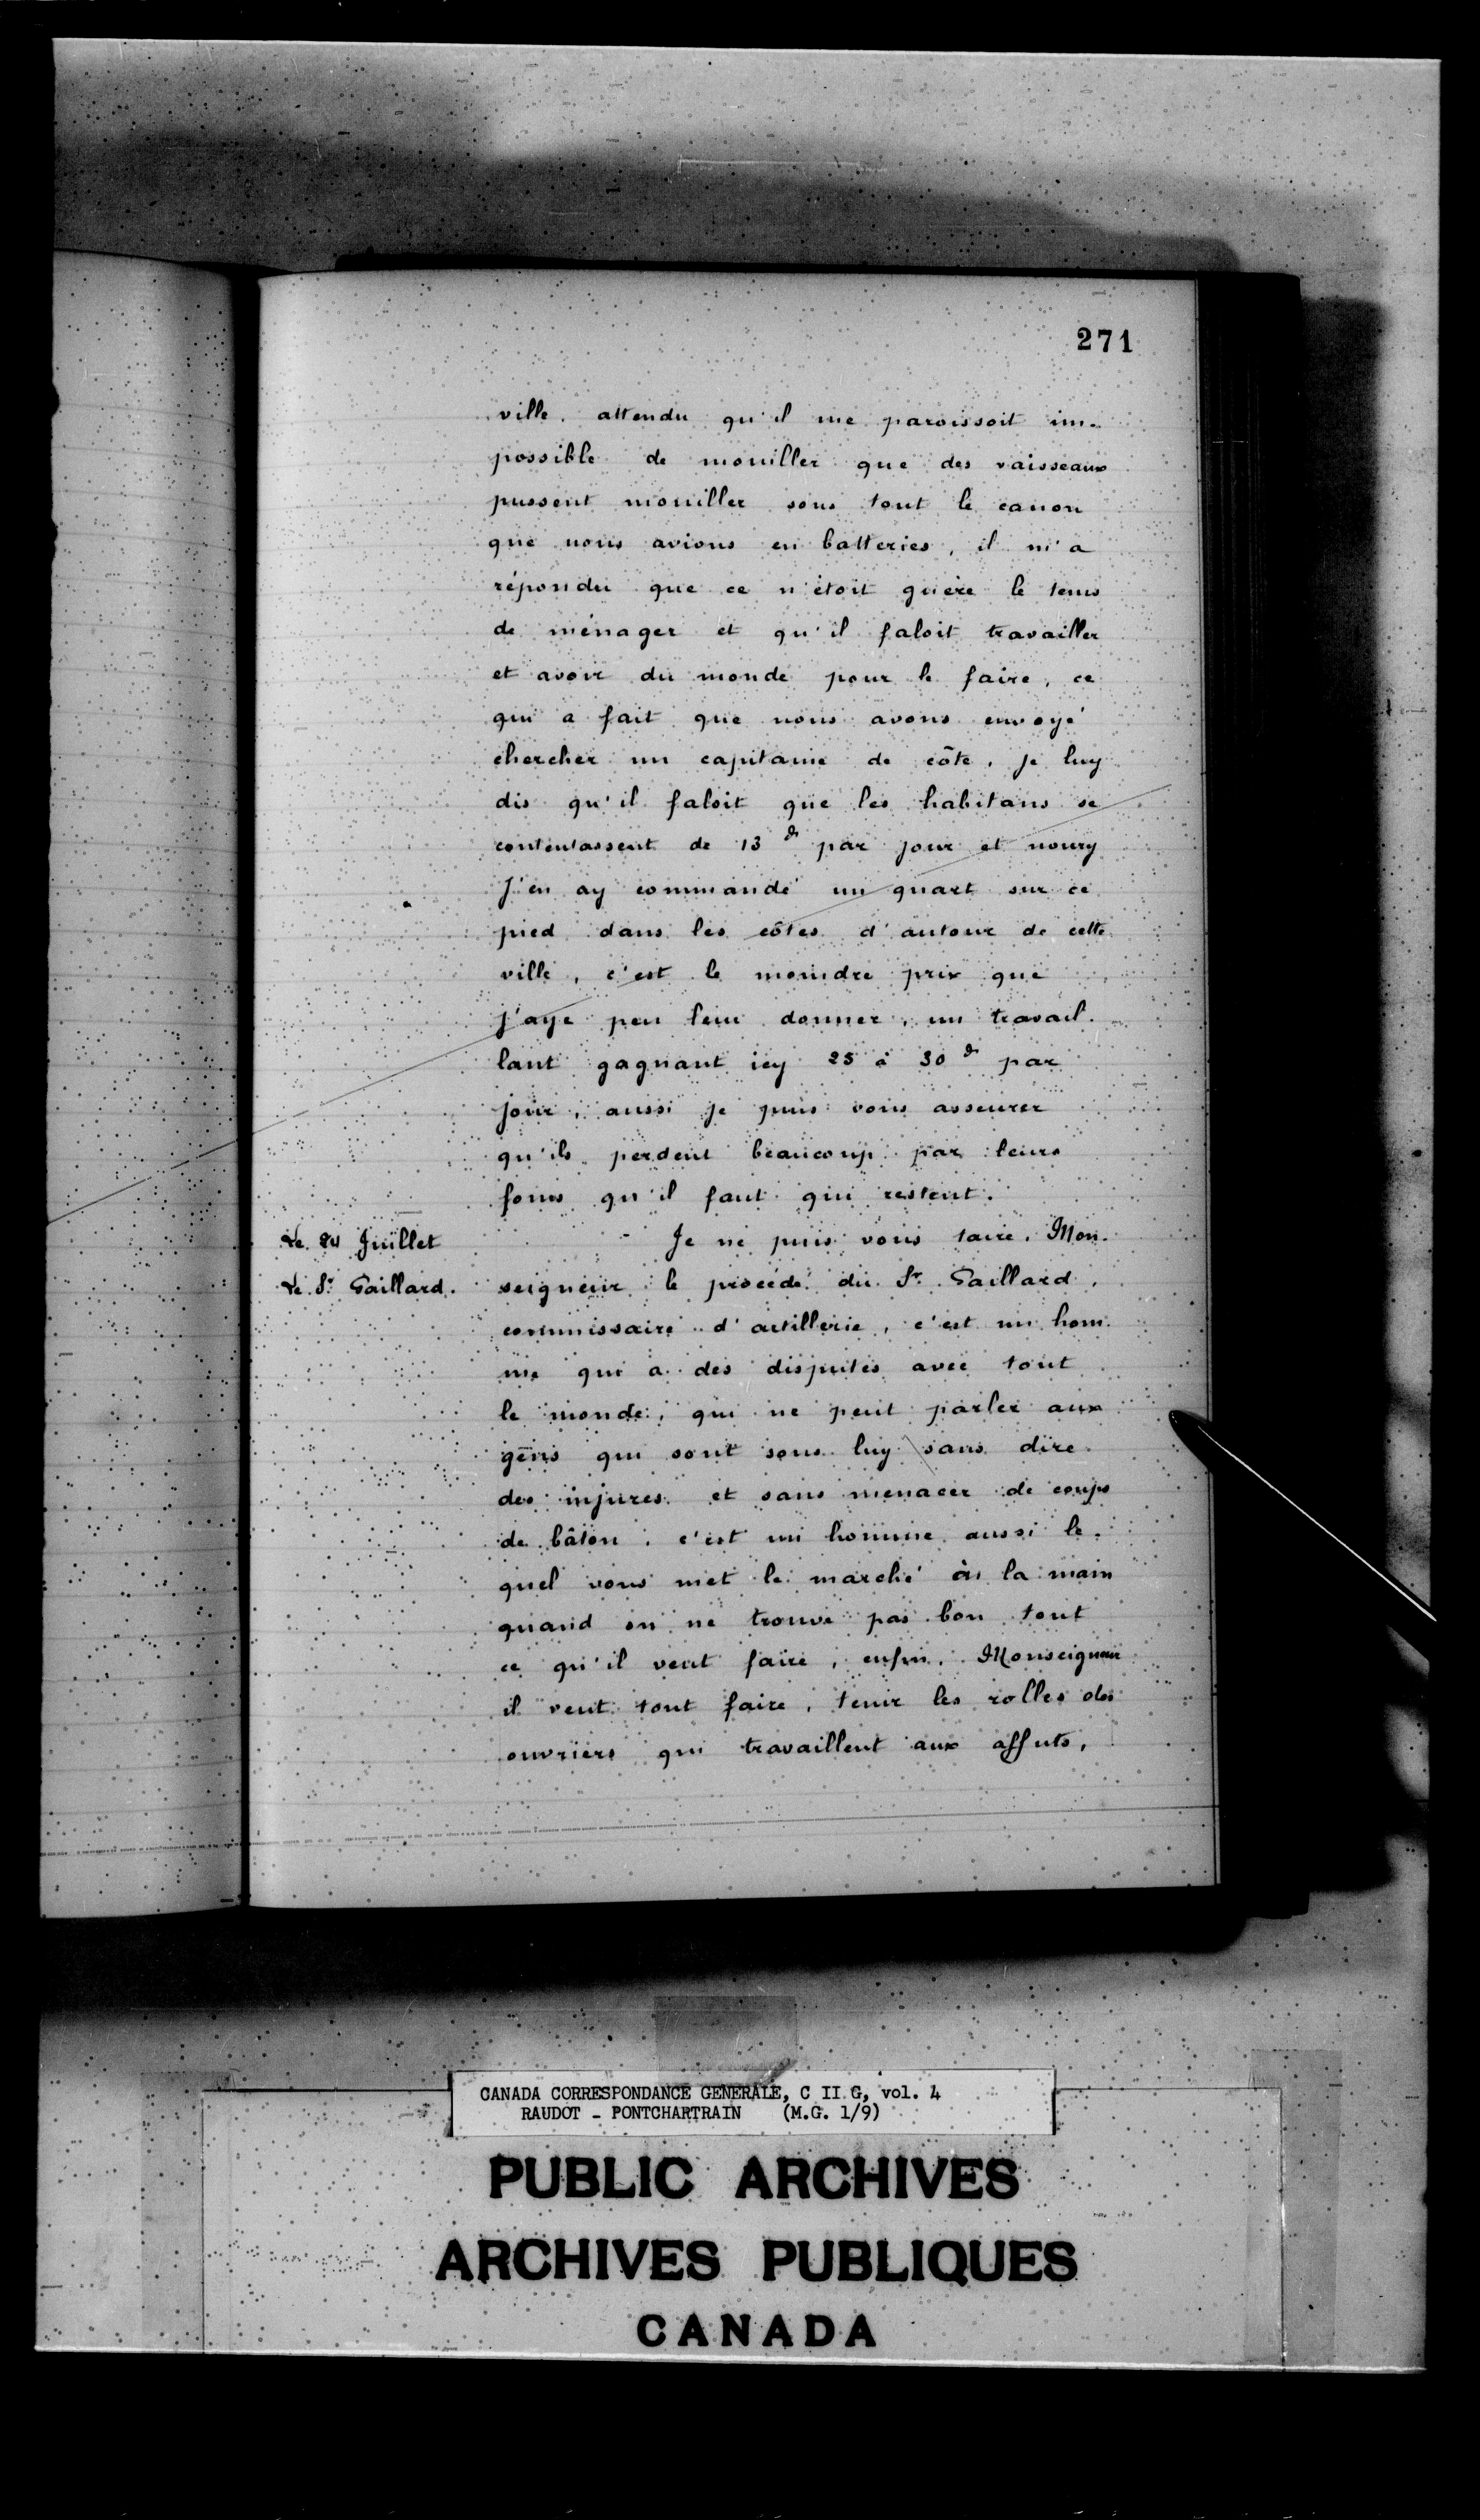 271
ville. attendu qu'il me paroissoit im-
possible de mouiller que des vaisseaux
pussent mouiller sous tout le canon
que nous avions en batteries, il m'a
répondu que ce n'étoit guère le tems
de ménager et qu'il faloit travailler
et avoir du monde pour le faire, ce
qui a fait que nous avons envoyé
chercher un capitaine de côte, je luy
dis qu'il faloit que les habitans se
contentassent de 13 s par jour et noury
J'en ay commandé un quart sur ce
pied dans les côtes d'autour de cette
ville, c'est le moindre prix que
j'aye peu leur donner, un travail-
lant gagnant icy 25 à 30 s par
jour, aussi je puis vous asseurer
qu'ils perdent beaucoup par leurs
foins qu'il faut qui restent.
Le 24 Juillet
Le Sr Gaillard.
Je ne puis vous taire, Mon-
seigneur le procédé du Sr Gaillard,
commissaire d'artillerie, c'est un hom-
me qui a des disputes avec tout
le monde, qui ne peut parler aux
gens qui sont sous luy sans dire
des injures et sans menacer de coups
de bâton, c'est un homme aussi le-
quel vous met le marché à la main
quand on ne trouve pas bon tout
ce qu'il veut faire, enfin, Monseigneur
il veut tout faire, tenir les rolles des
ouvriers qui travaillent aux affuts,
CANADA CORRESPONDANCE GENERALE, C II G, vol. 4
RAUDOT - PONTCHARTRAIN (M.G. 1/9)
PUBLIC ARCHIVES
ARCHIVES PUBLIQUES
CANADA